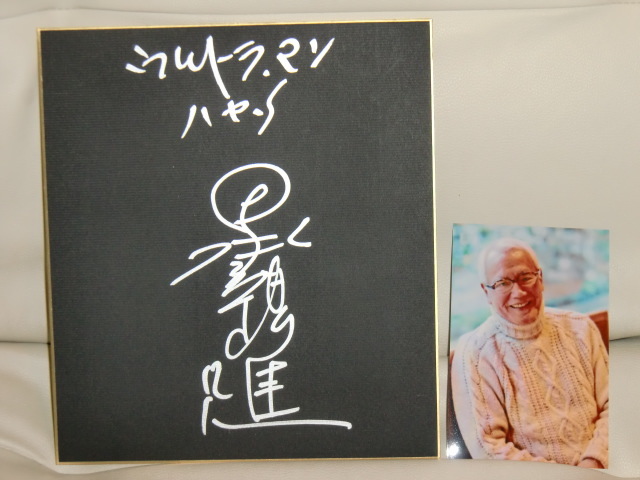 ウルトラマン
ハヤタ
黒部進